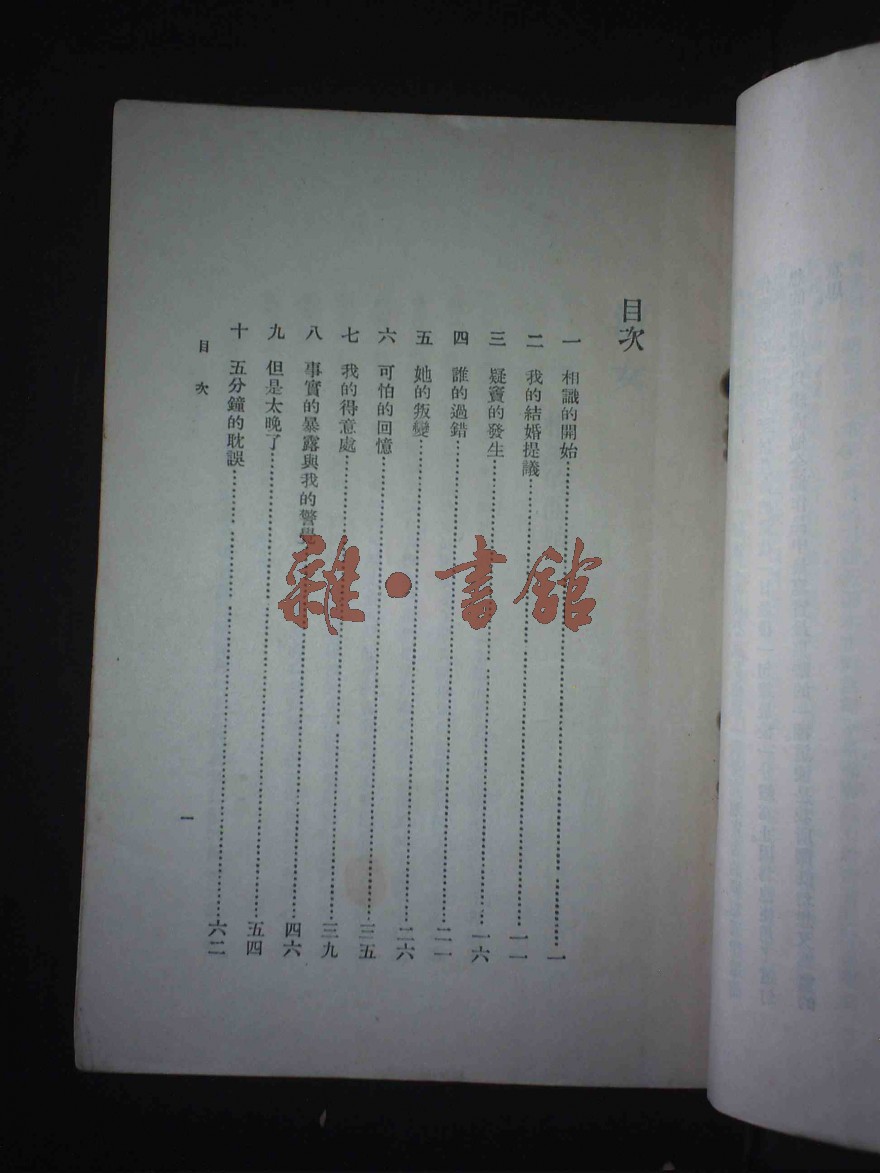 目次
一 相識的開始……一
二 我的結婚提議……一一
三 疑竇的發生……一六
四 誰的過錯……二一
五 她的叛變……二六
六 可怕的回憶……三五
七 我的得意處……三九
八 事實的暴露與我的警覺……四六
九 但是太晚了……五四
十 五分鐘的耽誤……六二
目次
一
雜·書館